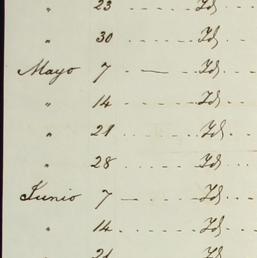 " 23 .... Id
" 30 .... Id
Mayo 7 . — .... Id ...
" 14 ...... Id ...
" 21 ...... Id ...
" 28 ...... Id ...
Junio 7 — ..... Id ...
" 14 ...... Id ...
" 21 ...... Id